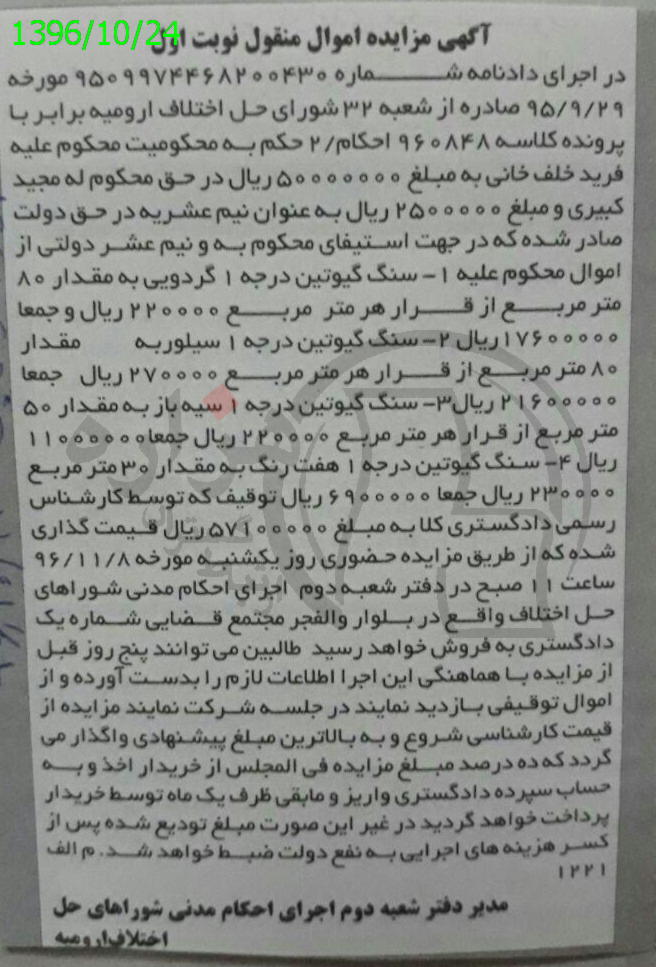 1396/10/24
آگهی مزایده اموال منقول نوبت اول
در اجرای دادنامه شماره ۹۵۰۹۹۷۴۴۶۸۲۰۰۴۳۰ مورخه
۹۵/۹/۲۹ صادره از شعبه ۳۲ شورای حل اختلاف ارومیه برابر با
پرونده کلاسه ۹۶۰۸۴۸ احکام/۲ حکم به محکومیت محکوم علیه
فرید خلف خانی به مبلغ ۵۰۰۰۰۰۰۰ ریال در حق محکوم له مجید
کبیری و مبلغ ۲۵۰۰۰۰۰ ریال به عنوان نیم عشریه در حق دولت
صادر شده که در جهت استیفای محکوم به و نیم عشر دولتی از
اموال محکوم علیه ۱- سنگ گیوتین درجه ۱ گردویی به مقدار ۸۰
متر مربع از قرار هر متر مربع ۲۲۰۰۰۰ ریال و جمعا
۱۷۶۰۰۰۰۰ ریال ۲- سنگ گیوتین درجه ۱ سیلور به مقدار
۸۰ متر مربع از قرار هر متر مربع ۲۷۰۰۰۰ ریال جمعا
۲۱۶۰۰۰۰۰ ریال ۳- سنگ گیوتین درجه ۱ سیه باز به مقدار ۵۰
متر مربع از قرار هر متر مربع ۲۲۰۰۰۰ ریال جمعا ۱۱۰۰۰۰۰۰
ریال ۴- سنگ گیوتین درجه ۱ هفت رنگ به مقدار ۳۰ متر مربع
۲۳۰۰۰۰ ریال جمعا ۶۹۰۰۰۰۰ ریال توقیف که توسط کارشناس
رسمی دادگستری کلا به مبلغ ۵۷۱۰۰۰۰۰ ریال قیمت گذاری
شده که از طریق مزایده حضوری روز یکشنبه مورخه ۹۶/۱۱/۸
ساعت ۱۱ صبح در دفتر شعبه دوم اجرای احکام مدنی شوراهای
حل اختلاف واقع در بلوار والفجر مجتمع قضایی شماره یک
دادگستری به فروش خواهد رسید طالبین می توانند پنج روز قبل
از مزایده با هماهنگی این اجرا اطلاعات لازم را بدست آورده و از
اموال توقیفی بازدید نمایند در جلسه شرکت نمایند مزایده از
قیمت کارشناسی شروع و به بالاترین مبلغ پیشنهادی واگذار می
گردد که ده درصد مبلغ مزایده فی المجلس از خریدار اخذ و به
حساب سپرده دادگستری واریز و مابقی ظرف یک ماه توسط خریدار
پرداخت خواهد گردید در غیر این صورت مبلغ تودیع شده پس از
کسر هزینه های اجرایی به نفع دولت ضبط خواهد شد. م الف
۱۲۲۱
مدیر دفتر شعبه دوم اجرای احکام مدنی شوراهای حل
اختلاف ارومیه